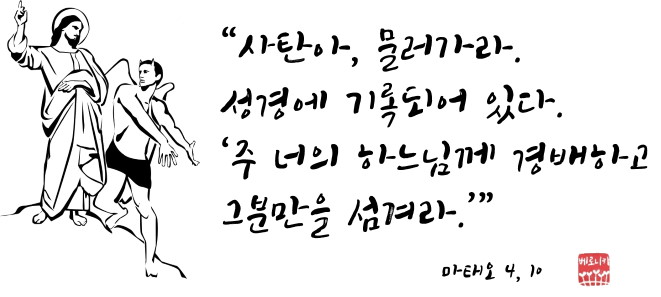 “사탄아, 물러가라.
성경에 기록되어 있다.
‘주 너의 하느님께 경배하고
그분만을 섬겨라.’”
마태오 4, 10
베로니카